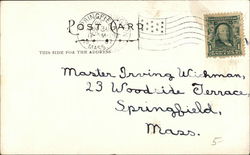 POST CARD
SPRINGFIELD
MASS.
THIS SIDE FOR THE ADDRESS
Master Irving Wichman,
23 Woodside Terrace,
Springfield,
Mass.
5